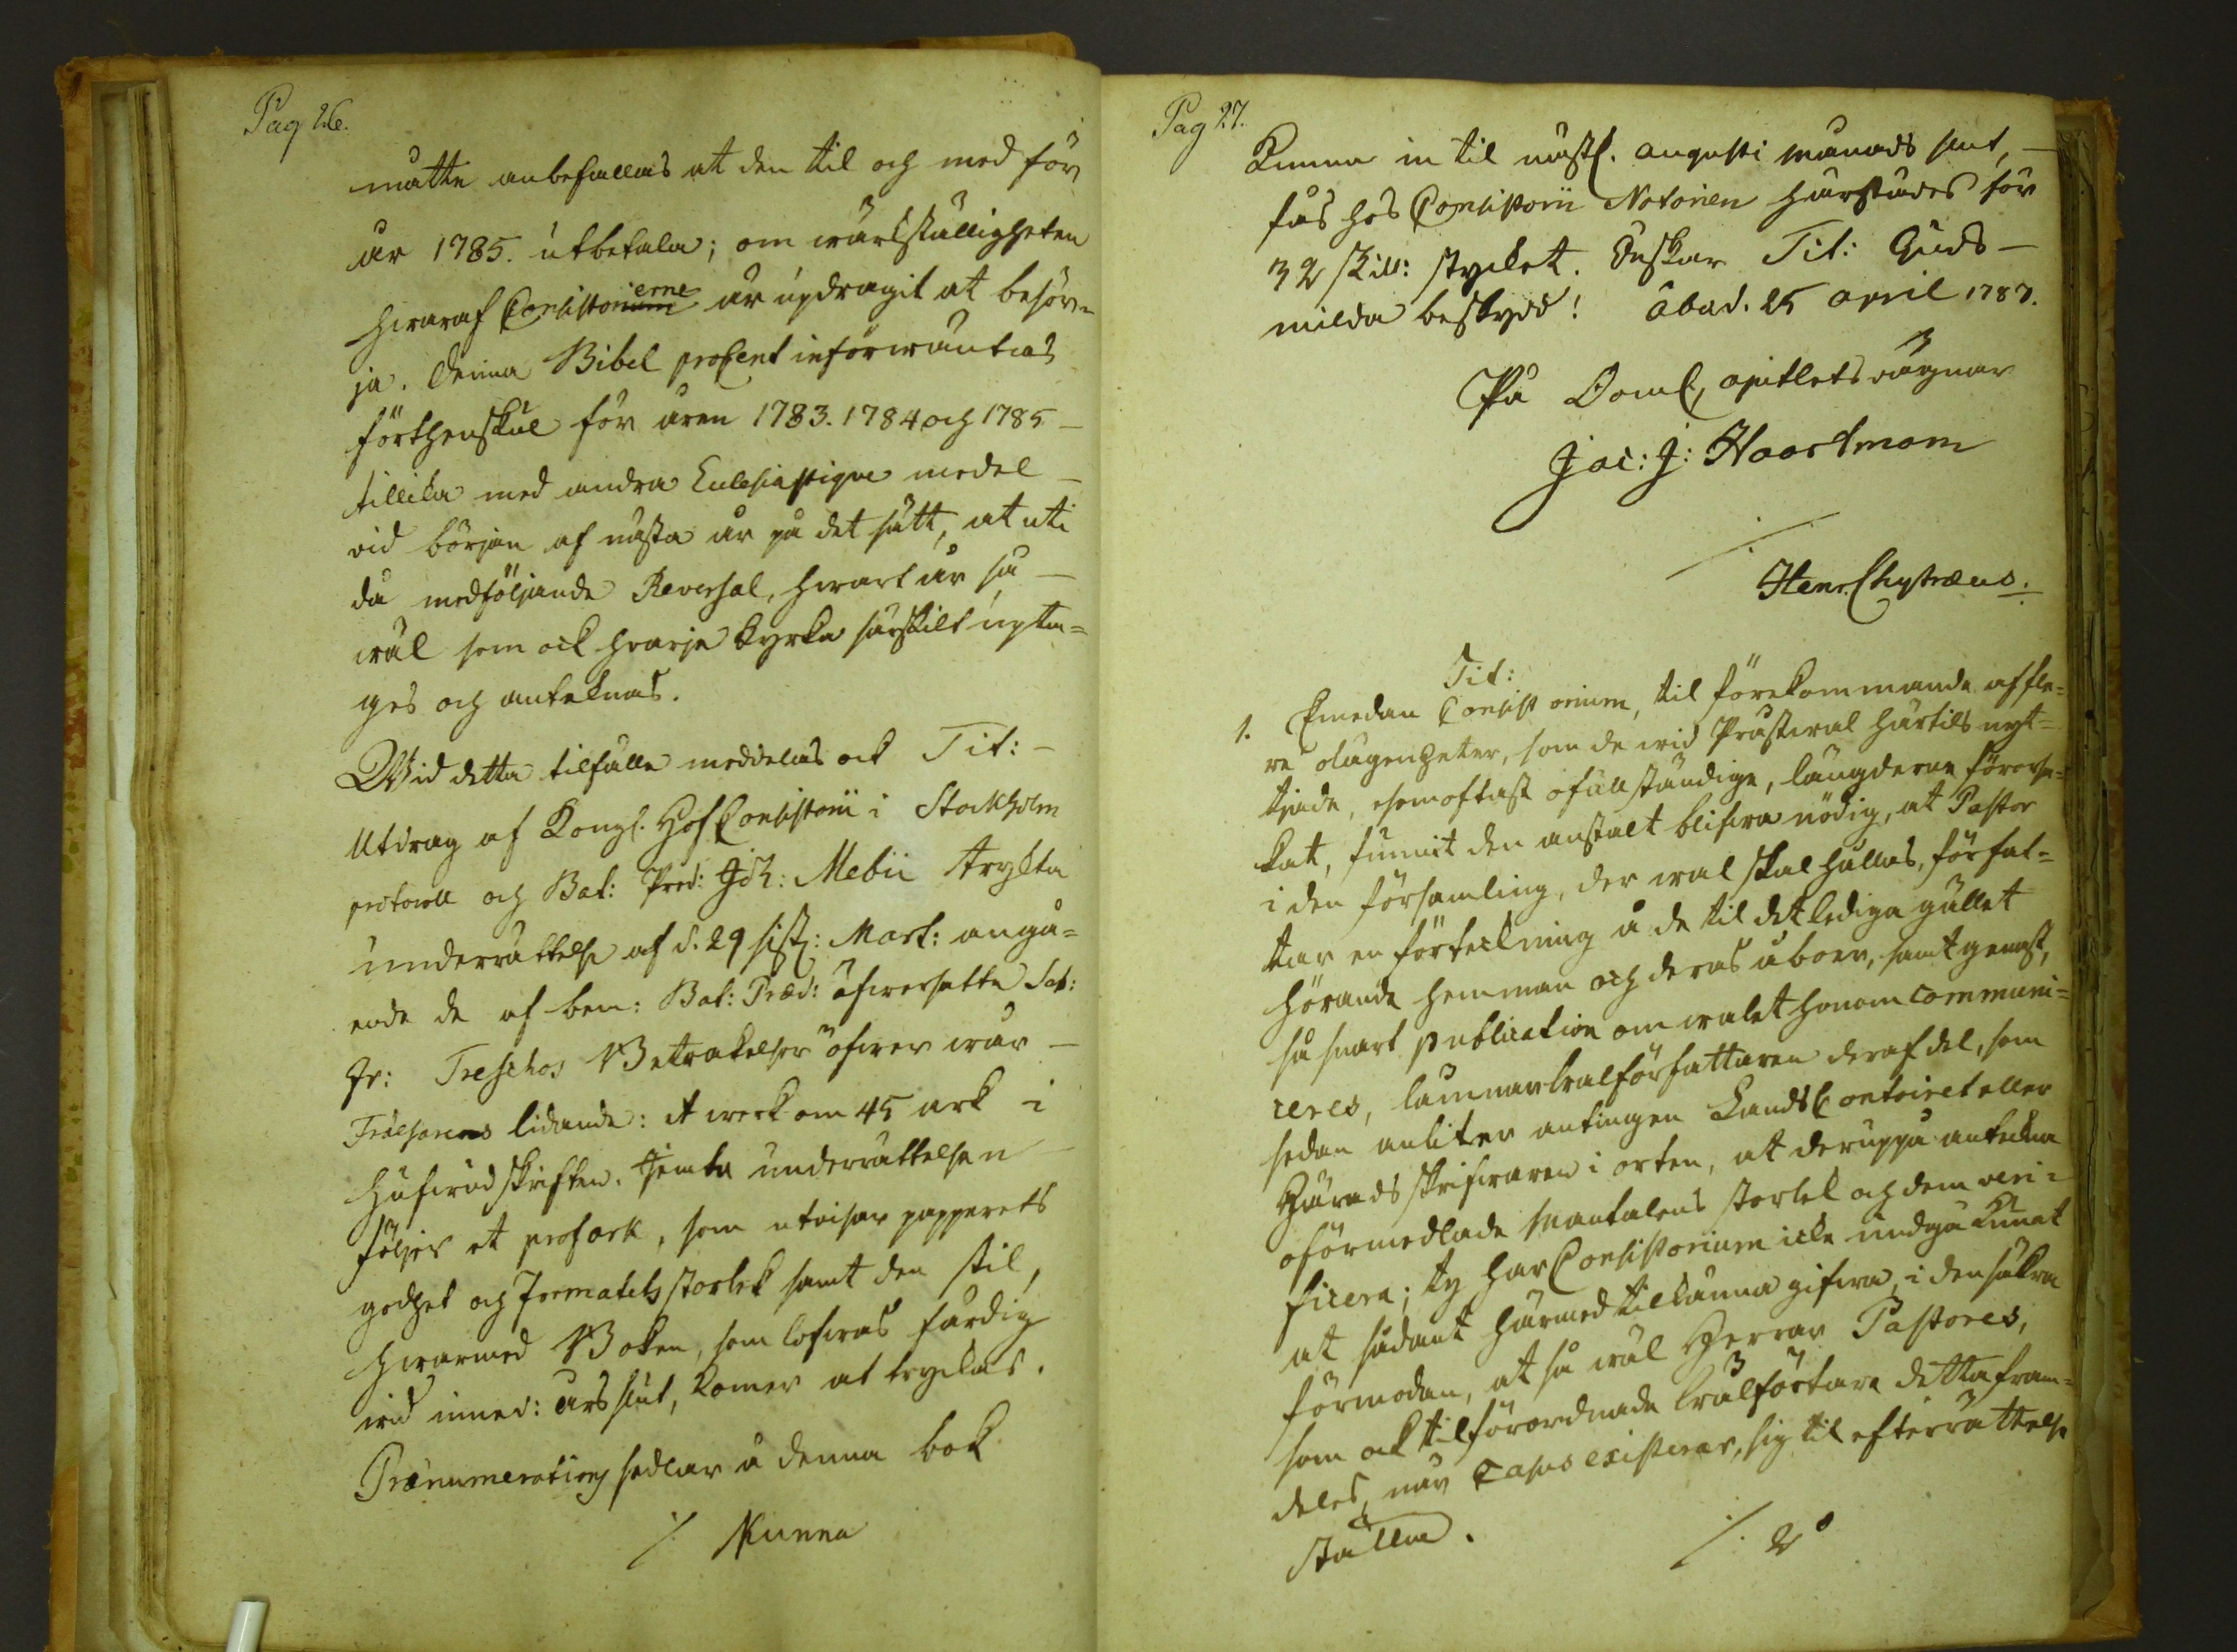 Pag 26.
måtte anbefallas at den til och med för
år 1785. utbetala; om wärkställigheten
hwaraf Consistorierne är updragit at besör-
ja. Denna Bibel procent införwäntas
förthenskul för åren 1783. 1784 och 1785 –
tillika med andra Eclesiastique medel –
vid början af nästa år på det sätt, at uti
då medföljande Reversal, hwart år så –
wäl som ock hvarje Kyrka särskilt upta=
ges och anteknas.
Wid detta tilfälle meddelas ock Tit: –
Utdrag af Kongl. Hof Consistorii i Stockholm
protocoll och Bat: Pred: Joh: Mebii tryckta
underrättelse af d. 29 sist: Mart: angå=
ende de af ben: Bat: Præd: öfwersatte
Fr: Treschos Betrakelser öfwer wår –
Frälsarens lidande: et werk om 45 ark i
hufwudskriften. Jemte underrättelsen
följer et profark, som utvisar papperets
godhet och formatets storlek samt den stil,
hwarmed Boken, som lofwas färdig
wid innev: års slut, komer at tryckas.
Prænumerations sedlar å denna bok
./. Kunna
Pag 27.
Kunna in til nästk. Augusti månads slut, –
fås hos Consistorii Notarien härstädes för
32 Skill: stycket. Önskar Tit: Guds –
milda beskydd! Åbo d. 25 April 1787.
På DomCapitlets vägnar
Jac: J: Haartman
Henr. Chytræus.
Tit:
1. Emedan Consistorium, til förekommande af fle=
re olägenheter, som de wid Prästwal härtils nyt=
tjade, esomoftast ofullständige, längderne förorsa=
kat, funnit den anstalt blifwa nödig, at Pastor
i den församling, der wal skal hållas, förfat=
tar en förteckning å de til det lediga gället
hörande hemman och deras åboer, samt genast,
så snart publication om walet honom communi=
ceres, lämnar walförfattaren deraf del, som
sedan anliter antingen LandsContoiret eller
Häradsskrifwaren i orten, at deruppå anteckna
oförmedlade Mantalens storlek och dem veri=
ficera; ty har Consistorium icke undgå kunnat
at sådant härmed tilkänna gifwa, i den säkra
förmodan, at så wäl Herrar Pastores,
som ock tilförordnade walförrättare detta fram=
deles, när Casus existerar, sig til efterrättelse
ställa.
./. 2°